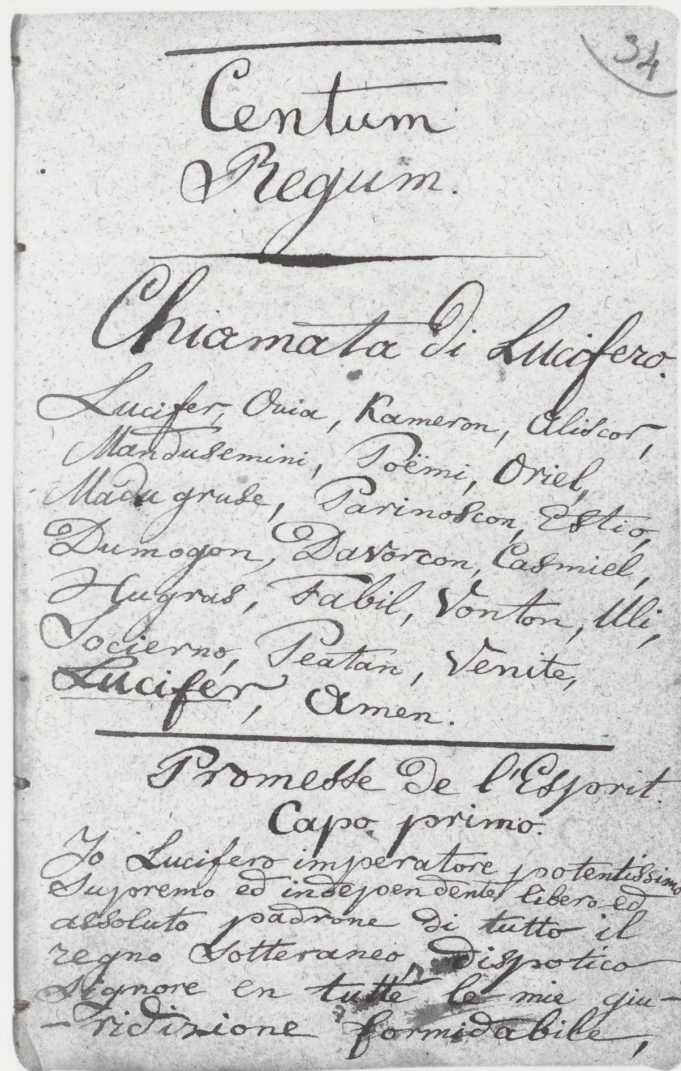 34
Centum
Regum.
Chiamata di Lucifero.
Lucifer, Ouia, Kameron, Aliscor,
Mandusemini, Poëmi, Oriel,
Madugruse, Parinoscon, Estio,
Dumogon, Davorcon, Casmiel,
Hugras, Fabil, Vonton, Uli,
Socierno, Peatan, Venite,
Lucifer, Amen.
Promesse de l'Esprit.
Capo primo.
Io Lucifero imperatore potentissimo
supremo ed independente, libero ed
assoluto padrone di tutto il
regno sotteraneo, dispotico
signore en tutte le mie giu-
-ridizione formidabile,